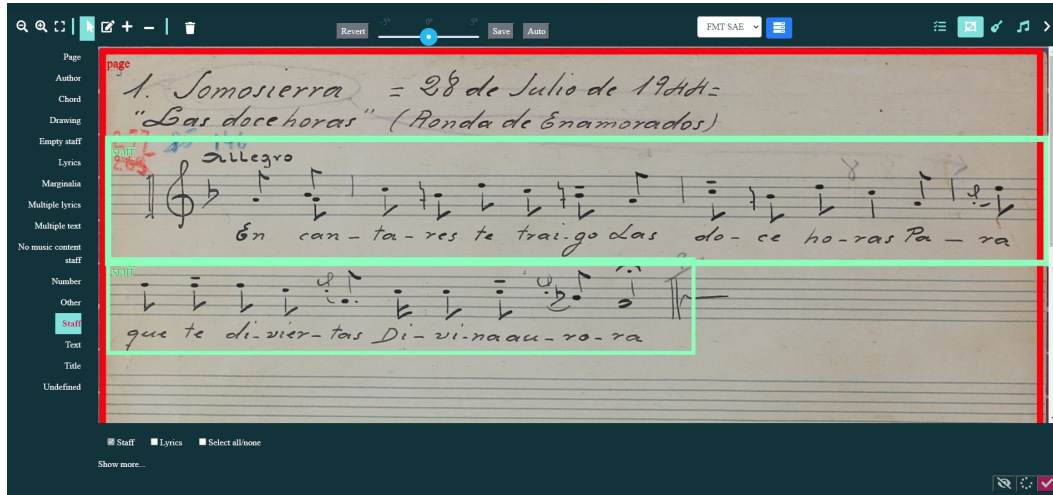 -5° 0° 5°
Revert Save Auto FMT SAE
Page
Author
Chord
Drawing
Empty staff
Lyrics
Marginalia
Multiple lyrics
Multiple text
No music content
staff
Number
Other
Staff
Text
Title
Undefined
page
1. Somosierra = 28 de Julio de 1944=
"Las doce horas" (Ronda de Enamorados)
staff
Allegro
En can - ta - res te trai-go Las do - ce ho - ras Pa - ra
staff
que te di-vier-tas Di-vi-naau-ro-ra
Staff Lyrics Select all/none
Show more...